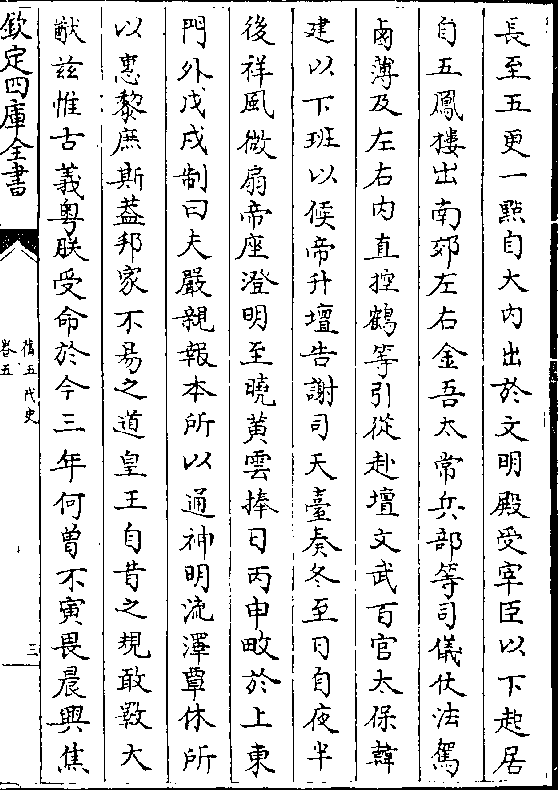 長至五更一㸃自大内出於文明殿受宰臣以下起居
自五鳳樓出南郊左右金吾太常兵部等司儀仗法駕
鹵薄及左右内直控鶴等引從赴壇文武百官太保韓
建以下班以候帝升壇告謝司天臺奏冬至日自夜半
後祥風微扇帝座澄明至曉黄雲捧日丙申畋於上東
門外戊戌制曰夫嚴親報本所以通神明流澤覃休所
以惠黎庶斯葢邦家不易之道皇王自昔之規敢斁大
猷兹惟古義粤朕受命於今三年何曾不寅畏晨興焦
欽定四庫全書
舊五代史
卷五
三